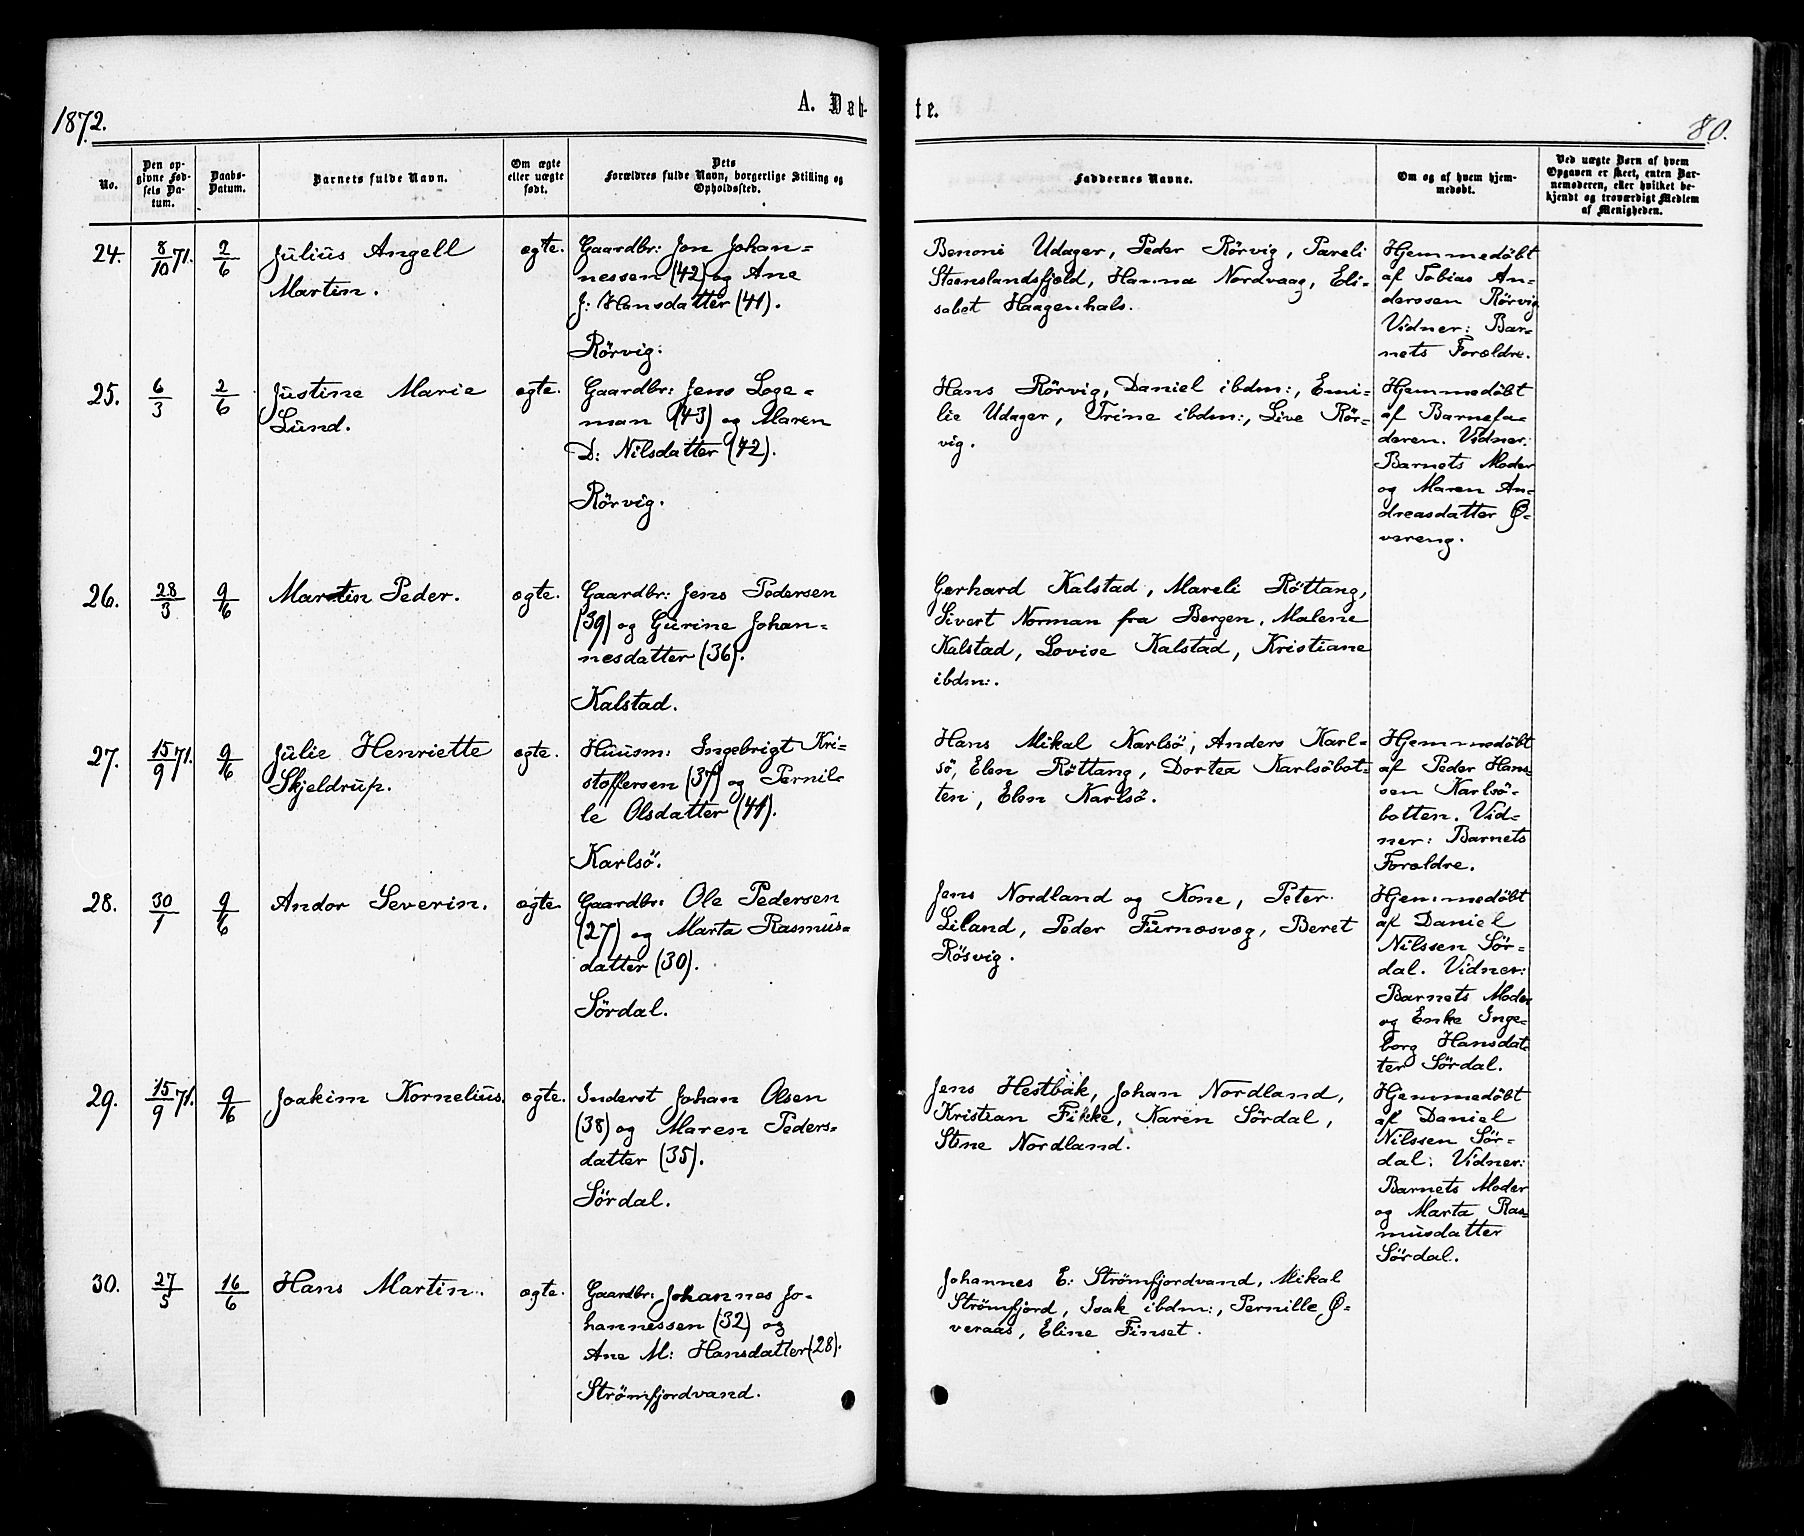 1872.
A. Døb-
te.
80.
No.
Den op-
givne Fød-
sels Da-
tum.
Daabs-
Datum.
Barnets fulde Navn.
Om ægte
eller uægte
født.
Dets
Forældres fulde Navn, borgerlige Stilling og
Opholdssted.
Faddernes Navne.
Om og af hvem hjem-
medøbt.
Ved uægte Børn af hvem
Opgaven er skeet, enten Bar-
nemoderen, eller hvilket be-
kjendt og troværdigt Medlem
af Menigheden.
24.
8/10 71.
2/6
Julius Angell
Martin.
ægte.
Gaardbr: Jon Johan=
nessen (42) og Ane
J: Hansdatter (41).
Rörvig.
Benoni Udager, Peder Rörvig, Pareli
Steenslandsfjeld, Hanna Nordvaag, Eli-
sabet Haagenhals.
Hjemmedöbt
af Tobias An-
derssen Rörvig
Vidner: Bar-
nets Forældre.
25.
6/3
2/6
Justine Marie
Lund.
ægte.
Gaardbr: Jens Loge=
man (43) og Maren
D: Nilsdatter (42).
Rörvig.
Hans Rörvig, Daniel ibdm:, Emi-
lie Udager, Trine ibdm:, Live Rör-
vig.
Hjemmedöbt
af Barnefa-
deren. Vidner:
Barnets Moder
og Maren An-
dreasdatter Ø-
vereng.
26.
28/3
9/6
Martin Peder.
ægte.
Gaardbr: Jens Pedersen
(39) og Gurine Johan-
nesdatter (36).
Kalstad.
Gerhard Kalstad, Mareli Röttang,
Sivert Norman fra Bergen, Malene
Kalstad, Lovise Kalstad, Kristiane
ibdm:.
27.
15/9 71.
9/6
Julie Henriette
Skjeldrup.
ægte.
Huusm: Ingebrigt Kri-
stoffersen (37) og Pernil-
le Olsdatter (41).
Karlsö.
Hans Mikal Karlsö, Anders Karl-
sö, Elen Röttang, Dortea Karlsöbot-
ten, Elen Karlsö.
Hjemmedöbt
af Peder Hans-
sen Karlsö-
botten. Vid-
ner: Barnets
Forældre.
28.
30/1
9/6
Andor Severin.
ægte.
Gaardbr: Ole Pedersen
(27) og Marta Rasmus-
datter (30).
Sördal.
Jens Nordland og Kone, Peter
Liland, Peder Furnæsvæg, Beret
Rösvig.
Hjemmedöbt
af Daniel
Nilssen Sör-
dal. Vidner:
Barnets Moder
og Enke Inge-
borg Hansdat-
ter Sördal.
29.
15/9 71.
9/6
Joakim Kornelius.
ægte.
Inderst Johan Olsen
(38) og Maren Peders-
datter (35).
Sördal.
Jens Hestbäk, Johan Nordland,
Kristian Fikke, Karen Sördal,
Stine Nordland.
Hjemmedöbt
af Daniel
Nilssen Sör-
dal: Vidner:
Barnets Moder
og Marta Ras-
musdatter
Sördal.
30.
27/5
16/6
Hans Martin.
ægte.
Gaardbr: Johannes Jo-
hannessen (32) og
Ane M: Hansdatter (28).
Strømfjordvand.
Johannes E: Strømfjordvand, Mikal
Strømfjord, Isak ibdm:, Pernille Ø-
veraas, Eline Finset.